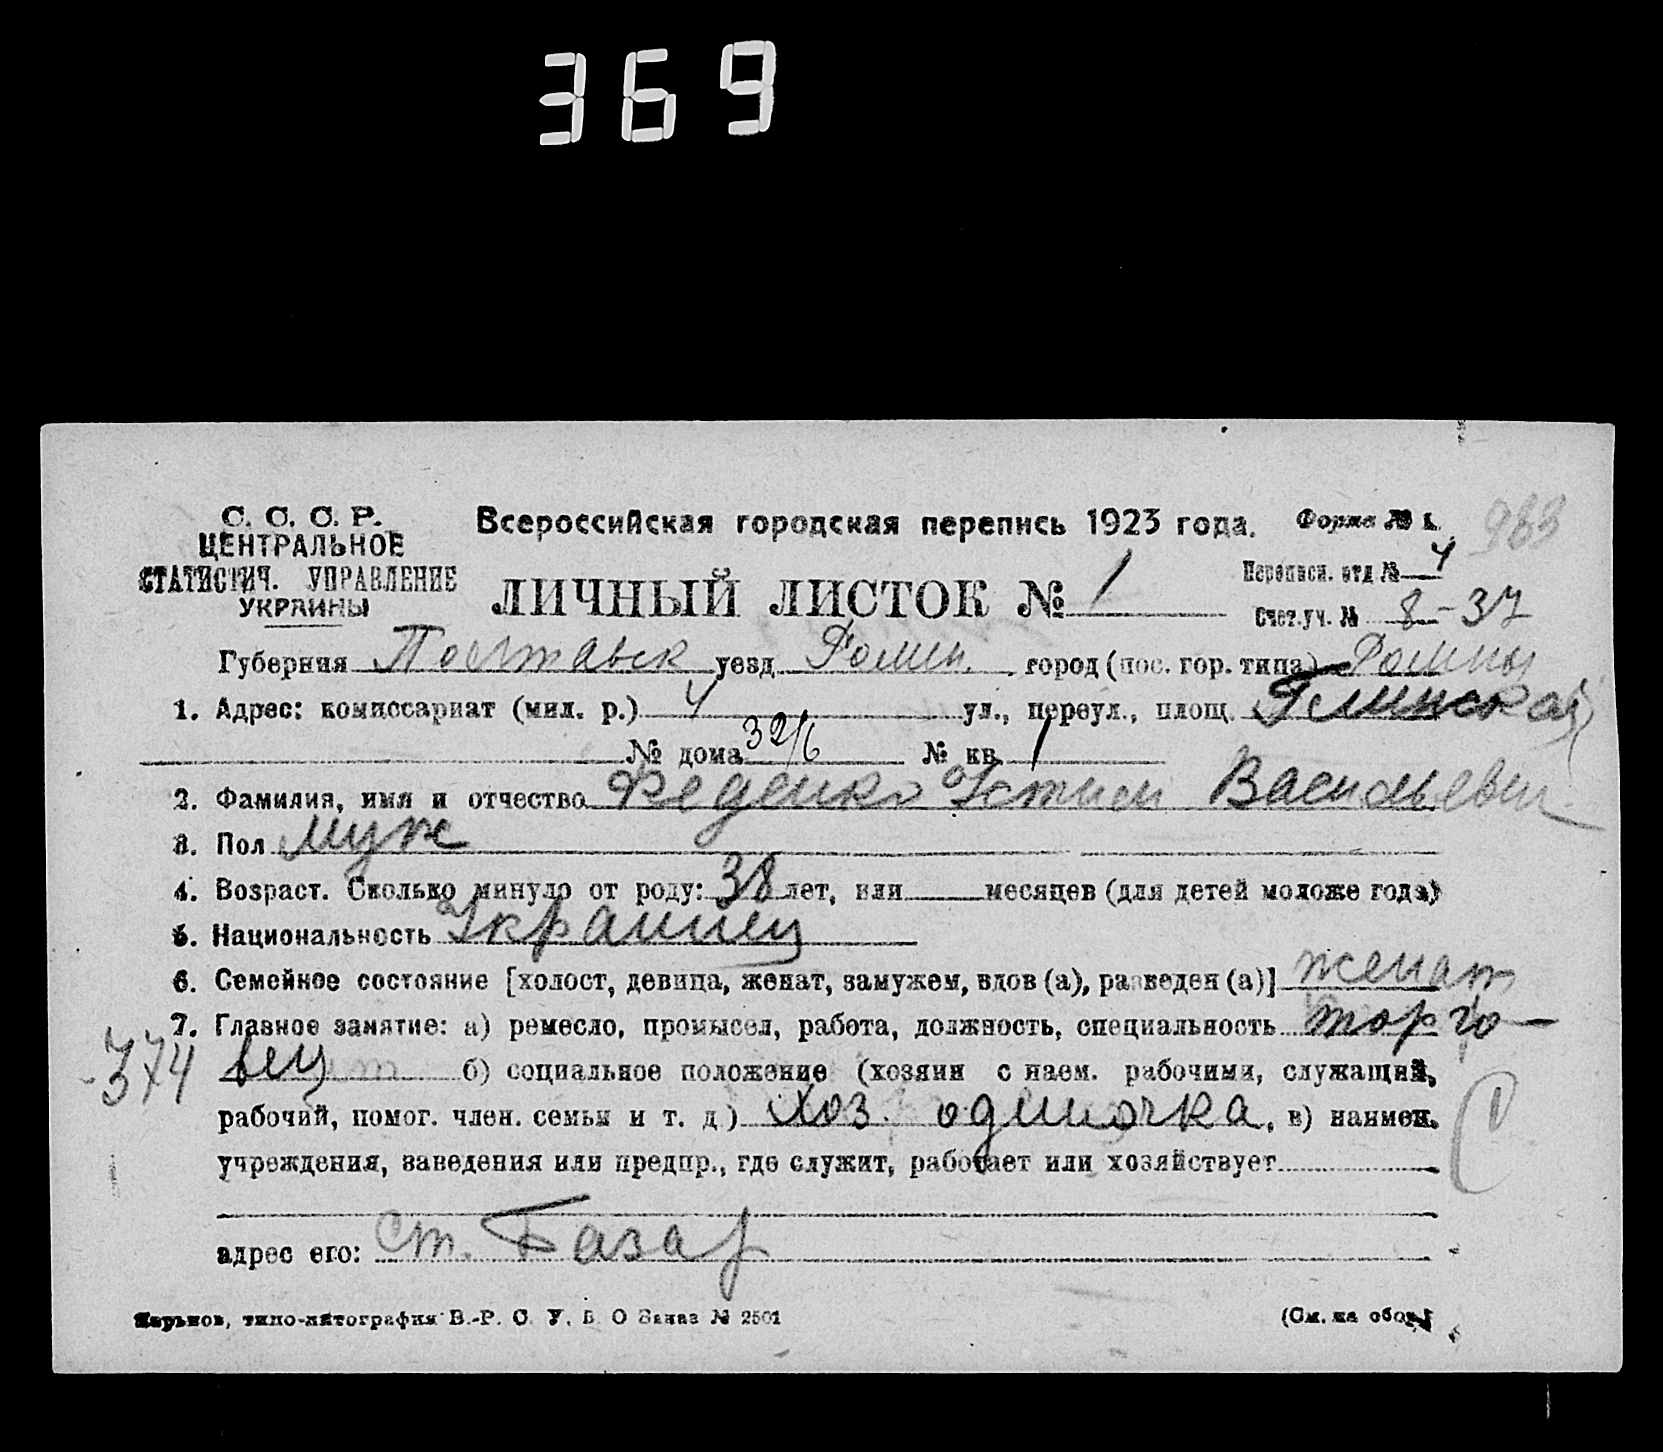 369
С. С. С. Р.
ЦЕНТРАЛЬНОЕ
СТАТИСТИЧ. УПРАВЛЕНИЕ
УКРАИНЫ
Всероссийская городская перепись 1923 года.
Форма № 1.
983
ЛИЧНЫЙ ЛИСТОК № 1
Переписн. отд № 4
Счет.уч. № 8-37
Губерния Полтавск уезд Ромен. город (пос. гор. типа) Ромны
1. Адрес: комиссариат (мил. р.) 4 ул., переул., площ. Глинская
№ дома 32/6 № кв. 1
2. Фамилия, имя и отчество Феденко Устин Васильевич
3. Пол муж
4. Возраст. Сколько минуло от роду: 38 лет, или месяцев (для детей моложе года)
5. Национальность Украинец
6. Семейное состояние [холост, девица, женат, замужем, вдов (а), разведен (а)] женат
7. Главное занятие: а) ремесло, промысел, работа, должность, специальность торго-
374 вец б) социальное положение (хозяин с наем. рабочими, служащий,
рабочий, помог. член. семьи и т. д.) хоз. одиночка, в) наимен.
учреждения, заведения или предпр., где служит, работает или хозяйствует
адрес его: Ст. Базар
Харьков, типо-литография В.-Р. С. У. В. О Заказ № 2501
(См. на обор.)